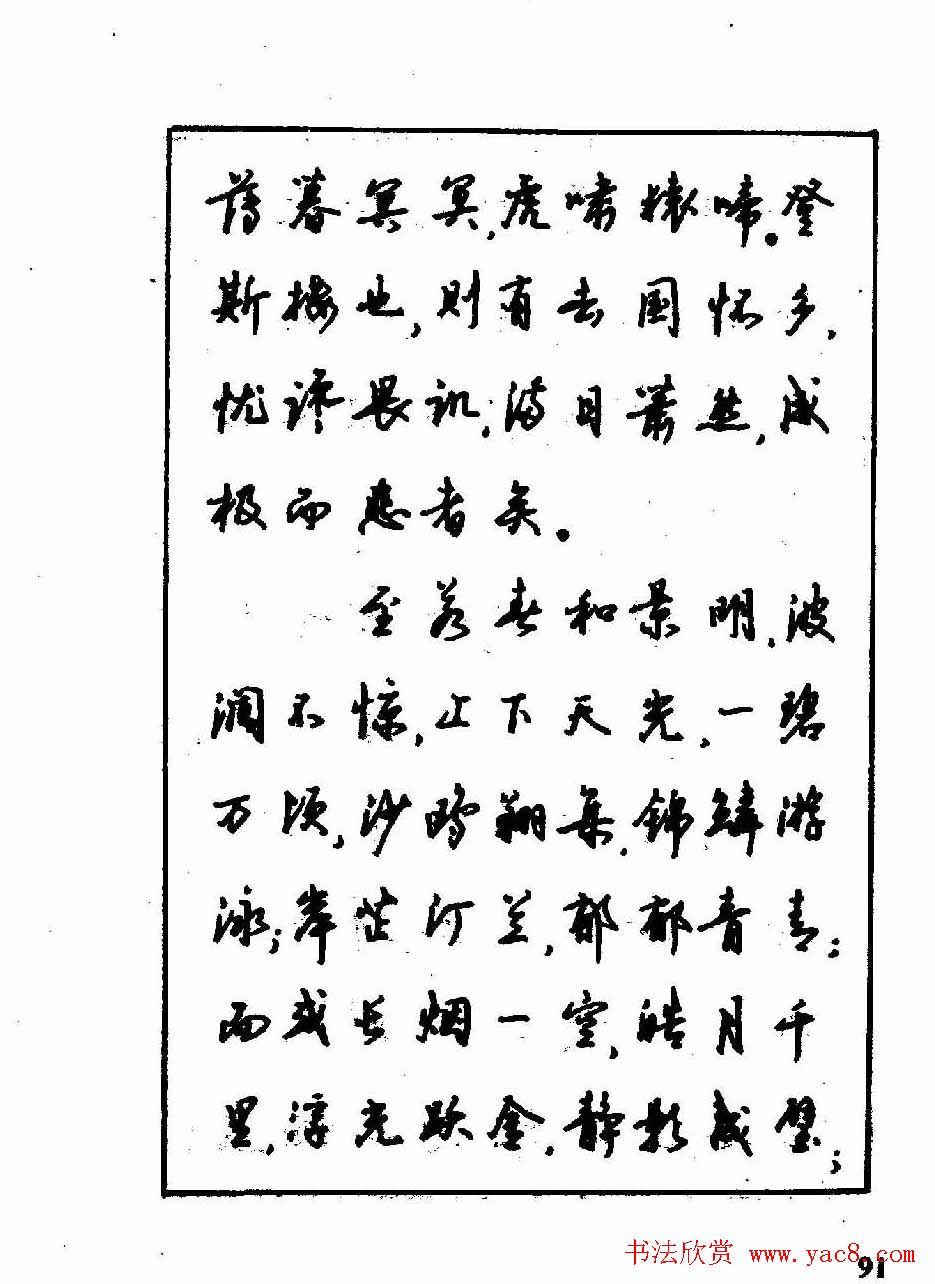 薄暮冥冥,虎啸猿啼。登
斯楼也,则有去国怀乡,
忧谗畏讥,满目萧然,感
极而悲者矣。
至若春和景明,波
澜不惊,上下天光,一碧
万顷,沙鸥翔集,锦鳞游
泳;岸芷汀兰,郁郁青青;
而或长烟一空,皓月千
里,浮光跃金,静影成璧;
书法欣赏 www.yac8.com
91